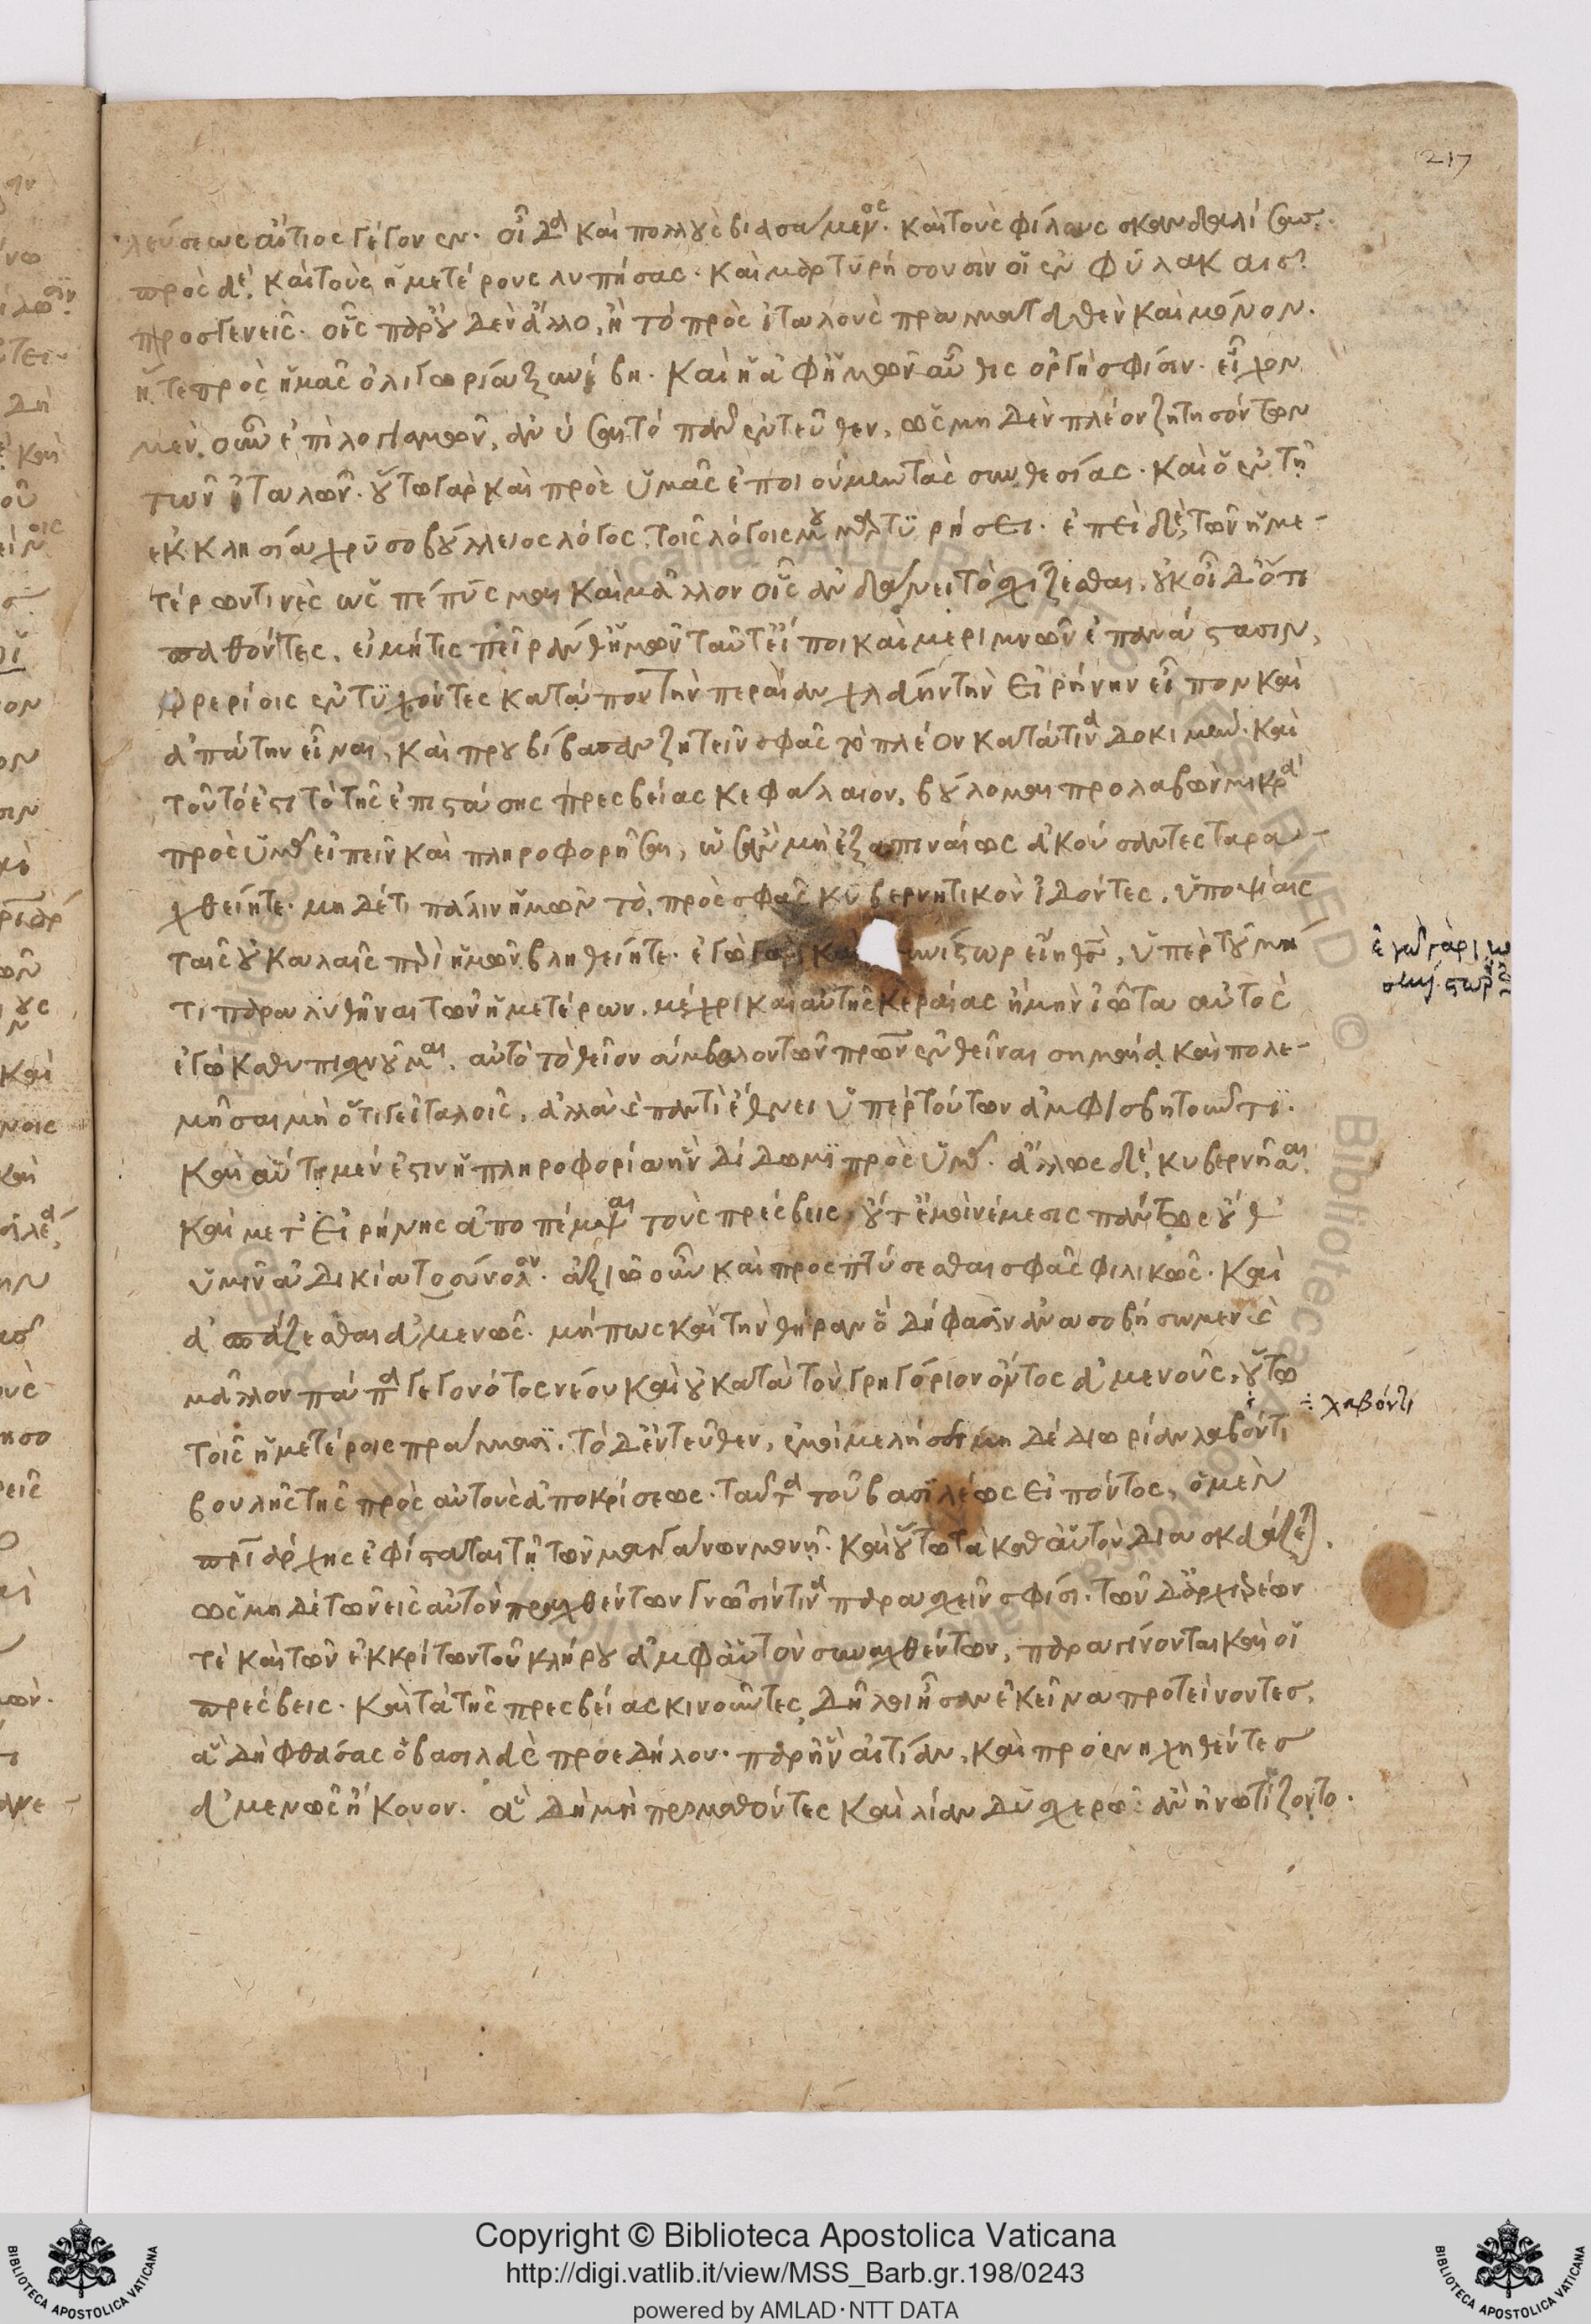 217
λεύσεως αἴτιος γέγονεν. οἶδα καὶ πολλοὺς βιασάμενος. καὶ τοὺς φίλους σκανδαλίσας.
πρὸς δὲ, καὶ τοὺς ἡμετέρους λυπήσας. καὶ μαρτυρήσουσιν οἱ ἐν φυλακαῖς
προσγενεῖς. οἷς παρ' οὐδὲν ἄλλο, ἢ τὸ πρὸς ἰταλοὺς πραγματευθὲν καὶ μόνον.
ἥ τε πρὸς ἡμᾶς ὀλιγωρία ξυνέβη. καὶ ἡ ἀφ' ἡμῶν αὖθις ὀργὴ σφίσιν. εἶχον
μὲν οὖν ἐπιλογὴ, ὡς μηδὲν πλέον ζητησόντων
τῶν ἰταλῶν. οὕτω γὰρ καὶ πρὸς ὑμᾶς ἐποιούμην τὰς συνθεσίας. καὶ ὁ ἐν τῇ
ἐκκλησίᾳ χρυσοβούλλειος λόγος, τοῖς λόγοις μου μαρτυρήσει. ἐπεὶ δὲ, τῶν ἡμε-
τέρων τινὲς ὡς πέπυσμαι καὶ μᾶλλον οἷς ἁνδάνει τὸ σχίζεσθαι, οὐκ οἶδ' ὅτι
παθόντες, εἰ μή τις πεῖραν θ' ἡμῶν ταῦτ' εἴποι καὶ μεριμνῶν ἐπανάστασιν,
φρερίοις ἐντυχόντες κατὰ που τὴν περαίαν χλεύην τὴν εἰρήνην εἶπον καὶ
ἀπάτην εἶναι, καὶ προυβίβασαν ζητεῖν σφᾶς τὸ πλέον κατά τινα δοκιμήν. καὶ
τοῦτό ἐστι τὸ τῆς ἐπιστάσης πρεσβείας κεφάλαιον, βούλομαι προλαβὼν μικρὰ
πρὸς ὑμᾶς εἰπεῖν καὶ πληροφορῆσαι, ὡς ἂν μὴ ἐξαπιναίως ἀκούσαντες ταρα-
χθείητε. μὴ δέ τι πάλιν ἡμῶν τὸ, πρὸς σφᾶς κυβερνητικὸν ἰδόντες, ὑποψίαις
ταῖς οὐ καλαῖς περὶ ἡμῶν βληθείητε. ἐγὼ γὰρ κα νίστωρ εἴη θεός, ὑπὲρ τοῦ μή
τι παραλυθῆναι τῶν ἡμετέρων. μέχρι καὶ αὐτῆς κεραίας ἢ μὴν ἰῶτα αὐτὸς
ἐγὼ καθυπισχνοῦμαι. αὐτὸ τὸ θεῖον σύμβολον τῶν πρων ἐνθεῖναι σημαίᾳ καὶ πολε-
μῆσαι μὴ ὅτι γε ἰταλοῖς, ἀλλὰ καὶ παντὶ ἔθνει ὑπὲρ τούτων ἀμφισβητοῦντι.
καὶ αὕτη μέν ἐστιν ἡ πληροφορία ἣν δίδωμι πρὸς ὑμᾶς. ἄλλως δὲ, κυβερνῆσαι
καὶ μετ' εἰρήνης ἀποπέμψαι τοὺς πρέσβεις, οὔτ' ἐμοὶ νέμεσις πάντως οὔθ'
ὑμῖν ἀδικία τὸ σύνολον. ἀξιῶ οὖν καὶ προσπτύσεσθαι σφᾶς φιλικῶς. καὶ
ἀσπάζεσθαι εὐμενῶς. μήπως καὶ τὴν θήραν ὃ δή φασὶν ἀνασοβήσωμεν καὶ
μᾶλλον πάπα γεγονότος νέου καὶ οὐ κατὰ τὸν γρηγόριον ὄντος εὐμενοῦς, οὕτω
τοῖς ἡμετέροις πράγμασι. τὸ δ' ἐντεῦθεν, ἐμοὶ μελήσει μηδὲ διωρίαν λαβόντι
βουλῆς τῆς πρὸς αὐτοὺς ἀποκρίσεως. ταῦτα τοῦ βασιλέως εἰπόντος, ὁ μὲν
πατριάρχης ἐφίσταται τῇ τῶν μαγγάνων μονῇ. καὶ οὕτω τὰ καθ' αὑτὸν διασκευάζεται,
ὡς μηδὲ τῶν εἰς αὐτὸν πραχθέντων γνῶσίν τινα παρασχεῖν σφίσι. τῶν δ' ἀρχιερέων
τὲ καὶ τῶν ἐκκρίτων τοῦ κλήρου ἀμφ' αὑτὸν συναχθέντων, παραγίνονται καὶ οἱ
πρέσβεις. καὶ τὰ τῆς πρεσβείας κινοῦντες, δῆλοι ἦσαν ἐκεῖνα προτείνοντες,
ἃ δὴ φθάσας ὁ βασιλεὺς προεδήλου. παρ' ἣν αἰτίαν, καὶ προενηχηθέντες
εὐμενῶς ἤκουον. ἃ δὴ μὴ προμαθόντες καὶ λίαν δυσχερῶς ἂν ἠνωτίζοντο.
λαβόντι
Copyright © Biblioteca Apostolica Vaticana
http://digi.vatlib.it/view/MSS_Barb.gr.198/0243
powered by AMLAD·NTT DATA
BIBLIOTECA APOSTOLICA VATICANA
BIBLIOTECA APOSTOLICA VATICANA